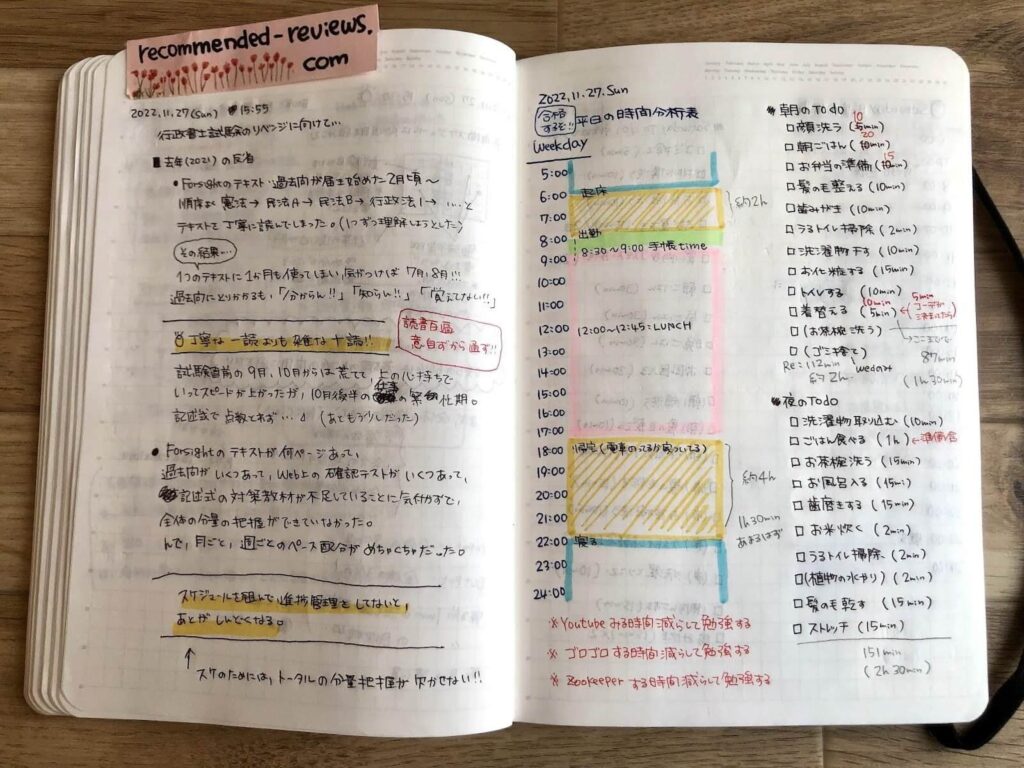 recommended-reviews.
com
2022.11.27(Sun) 15:55
行政書士試験のリベンジに向けて…
■ 去年(2021)の反省
• Forsightのテキスト・過去問が届き始めた2月頃〜
順序よく 憲法→民法A→民法B→行政法1→…と
テキストを丁寧に読んでしまった。(1つずつ理解しようとした)
その結果…
1つのテキストに1か月も使ってしまい、気がつけば7月、8月!!!
過去問にとりかかるも、「分からん!!」「知らん!!」「覚えてない!!」
丁寧な一読よりも雑な十読!!
読書百遍
意自ずから通ず!!
試験直前の9月、10月からは荒てて、上の心持ちで
いってスピードが上がったが、10月後半の仕事の繁忙期。
記述式で点数とれず…(あともう少しだった)
• Forsightのテキストが何ページあって、
過去問がいくつあって、Web上の確認テストがいくつあって、
記述式の対策教材が不足していることに気付かずで、
全体の分量の把握ができていなかった。
んで、月ごと、週ごとのペース配分がめちゃくちゃだった。
スケジュールを組んで進捗管理をしてないと、
あとがしんどくなる。
↑
スケのためには、トータルの分量把握が欠かせない!!
2022.11.27.Sun
合格
するぞ!!
平日の時間分析表
Weekday
5:00
6:00 起床
7:00
約2h
8:00 出勤
8:30〜9:00 手帳time
9:00
10:00
11:00
12:00 12:00〜12:45:LUNCH
13:00
14:00
15:00
16:00
17:00
18:00 帰宅(電車のってるか家ついてる)
19:00
約4h
20:00
21:00
1h30min
あまるはず
22:00 寝る
23:00
24:00
※ Youtubeみる時間減らして勉強する
※ ゴロゴロする時間減らして勉強する
※ Zookeeperする時間減らして勉強する
※朝のTodo
□ 顔洗う (5min) 10
□ 朝ごはん (10min) 20
□ お弁当の準備 (10min) 15
□ 髪の毛整える (10min)
□ 歯みがき (10min)
□ うるトイレ掃除 (2min)
□ 洗濯物干す (10min)
□ お化粧する (15min)
□ トイレする (10min)
□ 着替える (5min) 10min
5min
□ (お茶椀洗う)
ここまでで
□ (ゴミ捨て)
87min
(1h30min)
Re:112min
約2h
※夜のTodo
□ 洗濯物取り込む (10min)
□ ごはん食べる (1h) ←準備含
□ お茶椀洗う (15min)
□ お風呂入る (15min)
□ 歯磨きする (15min)
□ お米炊く (2min)
□ うるトイレ掃除 (2min)
□ (植物の水やり) (2min)
□ 髪の毛乾す (15min)
□ ストレッチ (15min)
151min
(2h30min)